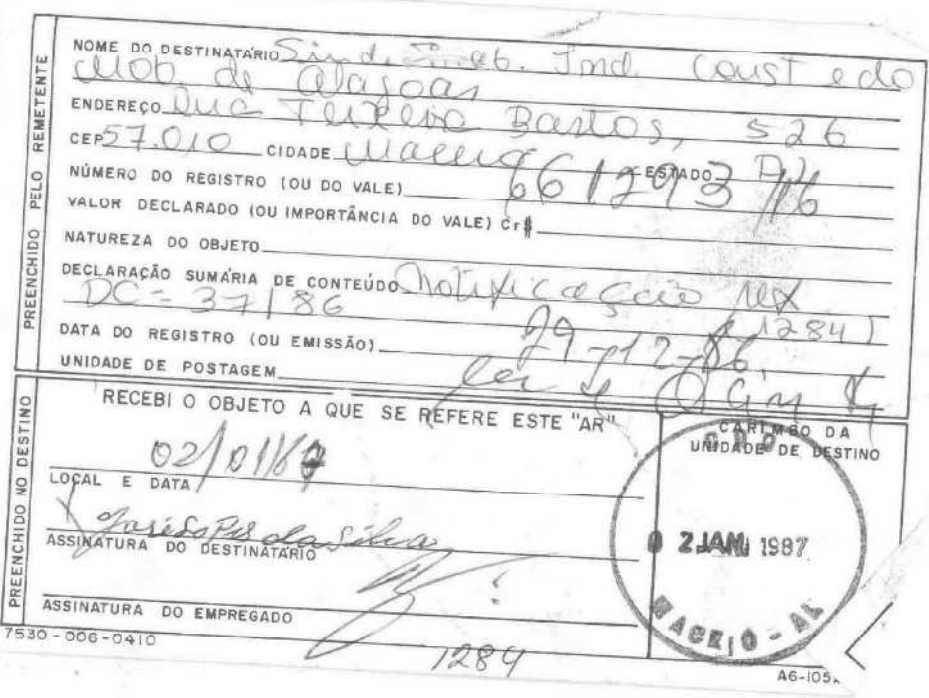 PREENCHIDO PELO REMETENTE
NOME DO DESTINATÁRIO Sind. Trab. Ind. Const e do
Mob. de Alagoas
ENDEREÇO Rua Teixeira Bastos, 526
CEP 57.010 CIDADE Maceió ESTADO
NÚMERO DO REGISTRO (OU DO VALE) 661293
VALOR DECLARADO (OU IMPORTÂNCIA DO VALE) Cr$
NATUREZA DO OBJETO
DECLARAÇÃO SUMÁRIA DE CONTEÚDO Notificação
DC = 37/86 (1284)
DATA DO REGISTRO (OU EMISSÃO) 29-12-86
UNIDADE DE POSTAGEM
PREENCHIDO NO DESTINO
RECEBI O OBJETO A QUE SE REFERE ESTE "AR"
02/01/87
LOCAL E DATA
ASSINATURA DO DESTINATÁRIO
da Silva
ASSINATURA DO EMPREGADO
CARIMBO DA
UNIDADE DE DESTINO
02 JAN 1987
MACEIÓ - AL
7530-006-0410
1284